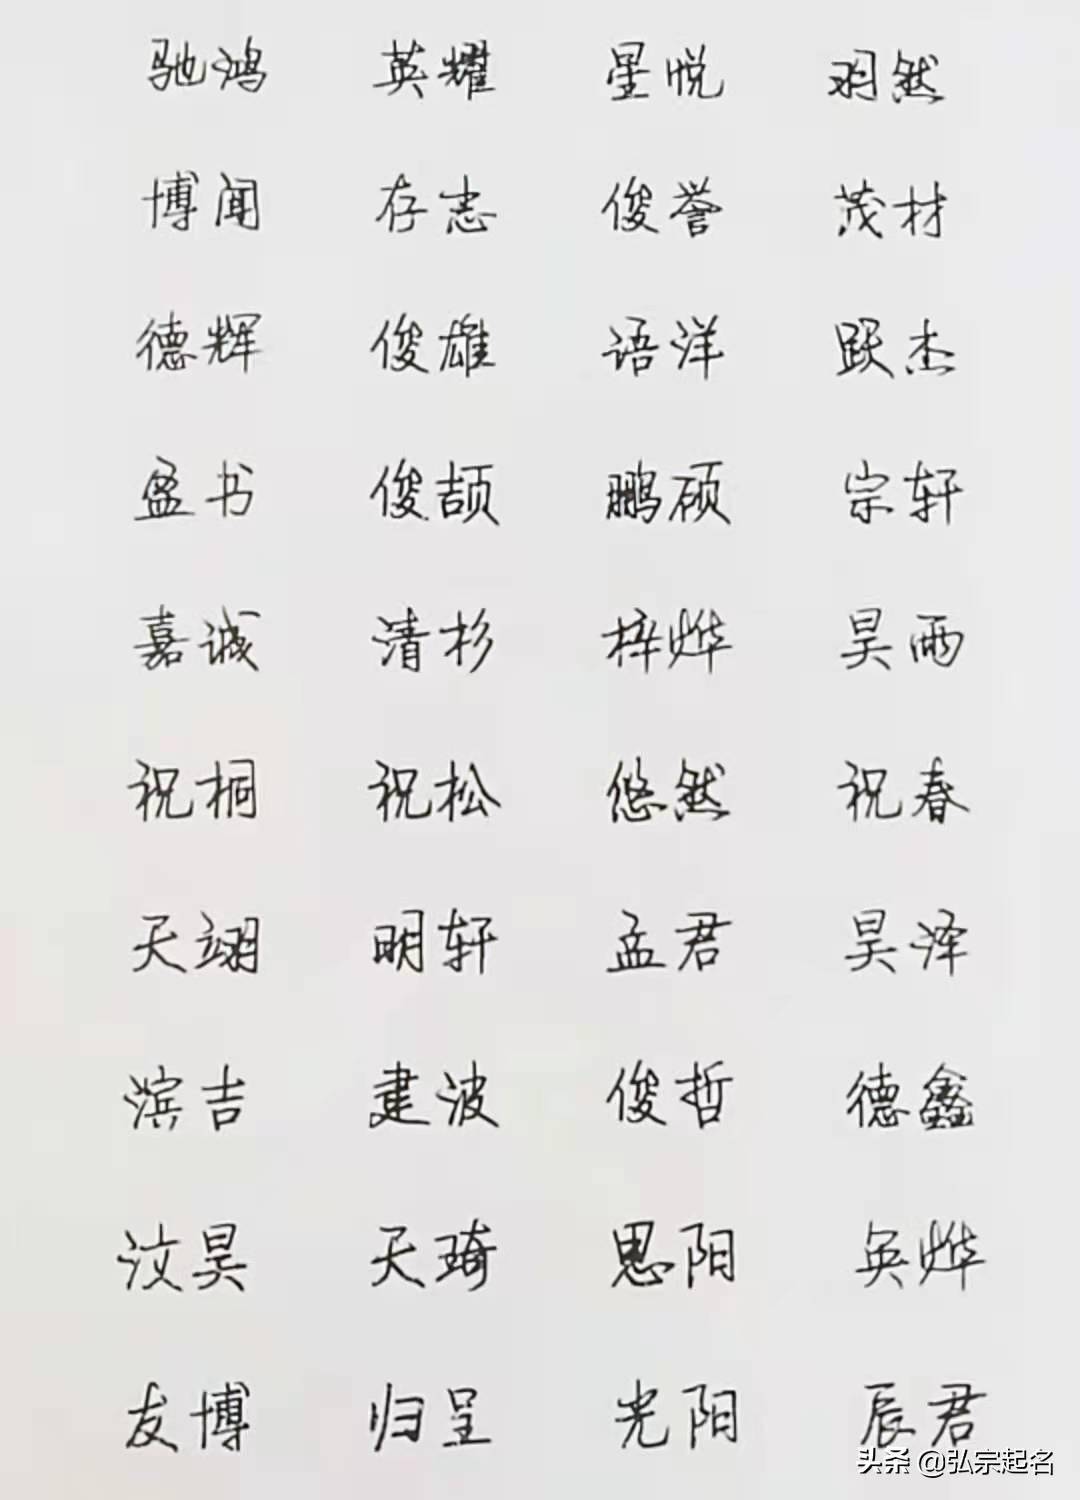 驰鸿 英耀 星悦 羽然
博闻 存志 俊誉 茂材
德辉 俊雄 语洋 跃杰
盈书 俊颉 鹏硕 宗轩
嘉诚 清杉 梓烨 昊雨
祝桐 祝松 悠然 祝春
天翊 明轩 孟君 昊泽
滨吉 建波 俊哲 德鑫
汶昊 天琦 思阳 英烨
友博 归呈 光阳 辰君
头条 @弘宗起名